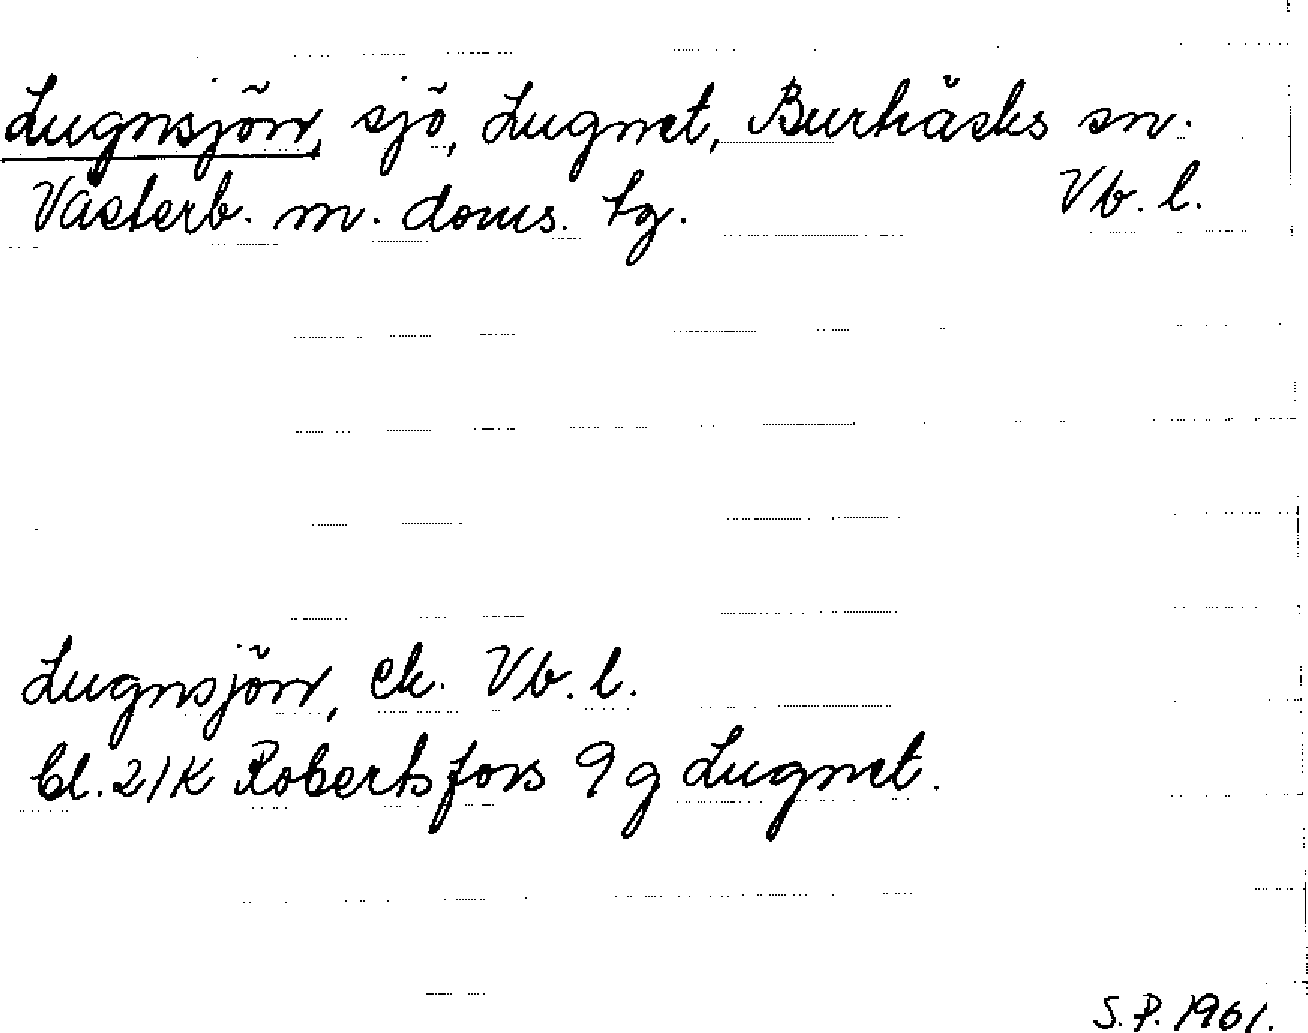 Lugnsjön, sjö, Lugnet, Burträsks sn.
Västerb. m. doms. tg. Vb. l.
Lugnsjön, ek. Vb. l.
Bl. 21K Robertsfors 9 g Lugnet.
S.P. 1961.